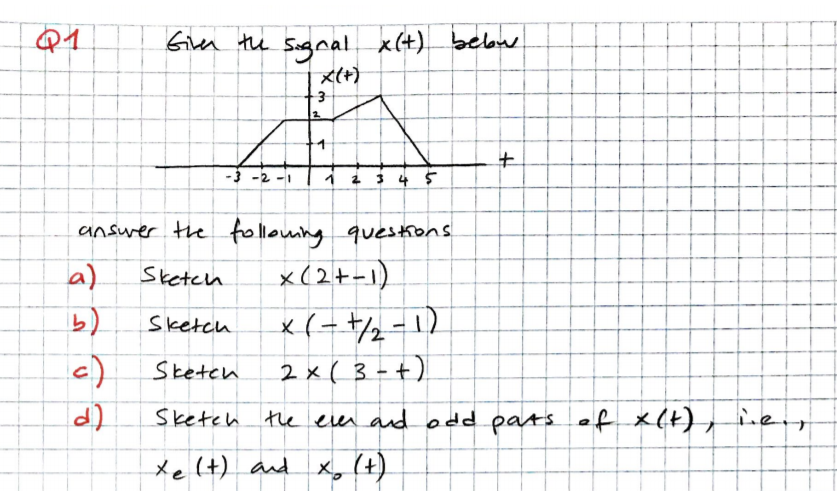 Q1 Given the signal x(t) below
x(t)
3
2
1
-3 -2 -1 1 2 3 4 5 t
answer the following questions
a) Sketch x(2t-1)
b) Sketch x(-t/2-1)
c) Sketch 2x(3-t)
d) Sketch the even and odd parts of x(t), i.e.,
xe(t) and xo(t)